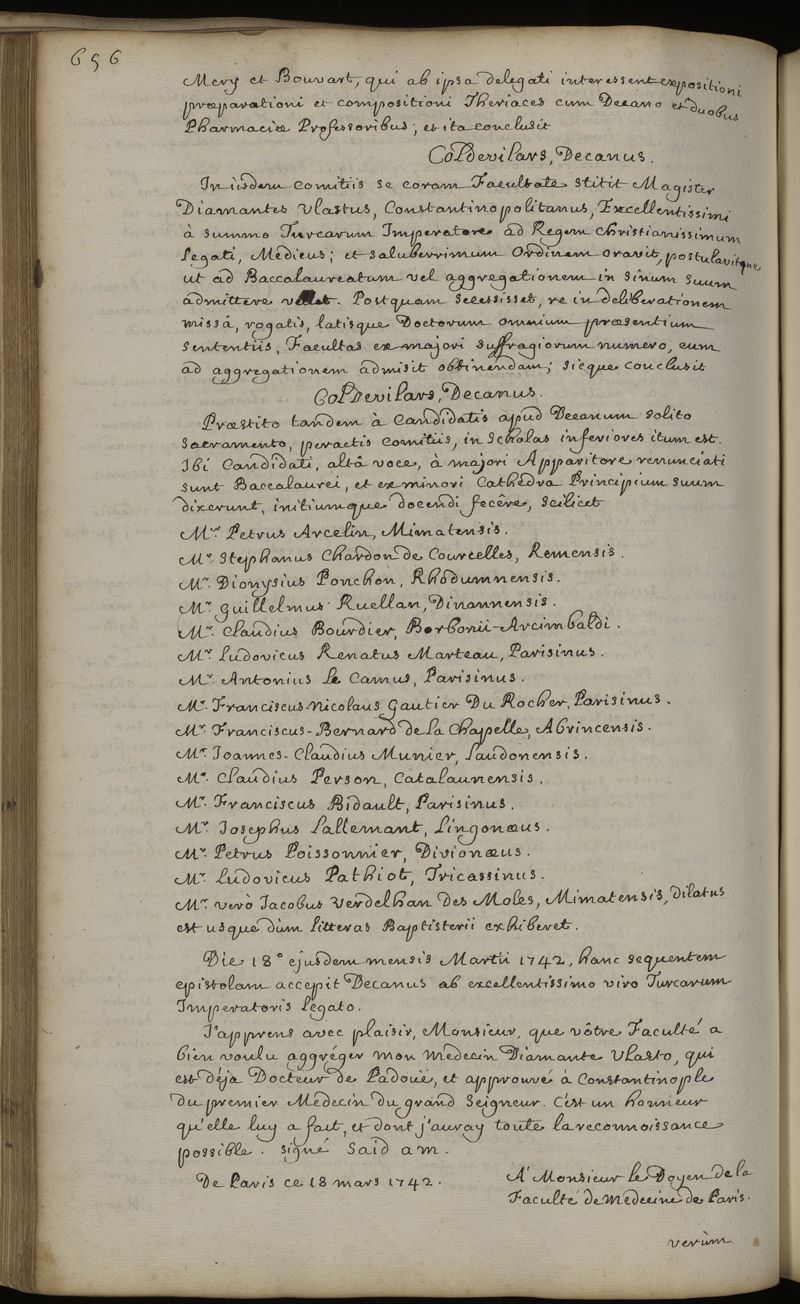 656
Mery et Bouvart, qui ab ipsa delegati interessent expositioni
præparationi et compositioni Theriaces cum Decano et duobus
Pharmaciæ Professoribus; et ita conclusit
Col De vilars, Decanus.
In iisdem comitiis se coram Facultate stitit Magister
Diamantes Vlastus, Constantinopolitanus, Excellentissimi
à summo Turcarum Imperatore ad Regem christianissimum
Legati, Medicus; et saluberrimum Ordinem oravit, postulavitque
ut ad Baccalaureatum vel aggregationem in sinum suum
admittere vellet. Postquam secessisset, re in deliberationem
missâ, rogatis, latisque Doctorum omnium præsentium
sententiis, Facultas ex majori suffragiorum numero, eum
ad aggregationem admisit obtinendam; sicque conclusit
Col De vilars, Decanus.
Præstito tandem à Candidatis apud Decanum solito
sacramento, peractis comitiis, in Scholas inferiores itum est.
Ibi Candidati, altâ voce, à majori Apparitore renunciati
sunt Baccalaurei, et ex minori Cathedra Principium suum
dixerunt, initiumque docendi fecêre, scilicet
Mr. Petrus Arcelin, Mimatensis.
Mr. Stephanus Chardon de Courcelles, Remensis.
Mr. Dionysius Ponchon, Rhodumnensis.
Mr. Guillelmus Ruellan, Dinannensis.
Mr. Claudius Bourdier, Borbonii-Arcimbaldi.
Mr. Ludovicus Renatus Marteau, Parisinus.
Mr. Antonius Le Camus, Parisinus.
Mr. Franciscus-Nicolaus Gautier Du Rocher, Parisinus.
Mr. Franciscus-Bernard de La Chapelle, Abrincensis.
Mr. Joannes-Claudius Munier, Laudonensis.
Mr. Claudius Person, Catalaunensis.
Mr. Franciscus Bidault, Parisinus.
Mr. Josephus Lallemant, Lingonæus.
Mr. Petrus Poissonnier, Divionæus.
Mr. Ludovicus Pathiot, Tricassinus.
Mr. verò Jacobus Verdelhan Des Moles, Mimatensis, dilatus
est usque dùm litteras Baptisterii exhiberet.
Die 18° ejusdem mensis Martii 1742, hanc sequentem
epistolam accepit Decanus ab excellentissimo viro Turcarum
Imperatoris Legato.
J'apprens avec plaisir, Monsieur, que vôtre Faculté a
bien voulu aggréger mon medecin Diamante Vlasto, qui
est déja Docteur de Padoüe, et approuvé à Constantinople
du premier Médecin du grand Seigneur. C'est un honneur
qu'elle luy a fait, et dont j'auray toute la reconnoissance
possible. signé Said am.
De Paris ce 18 mars 1742.
A' Monsieur le Doyen de la
Faculté de Médecine de Paris.
verùm